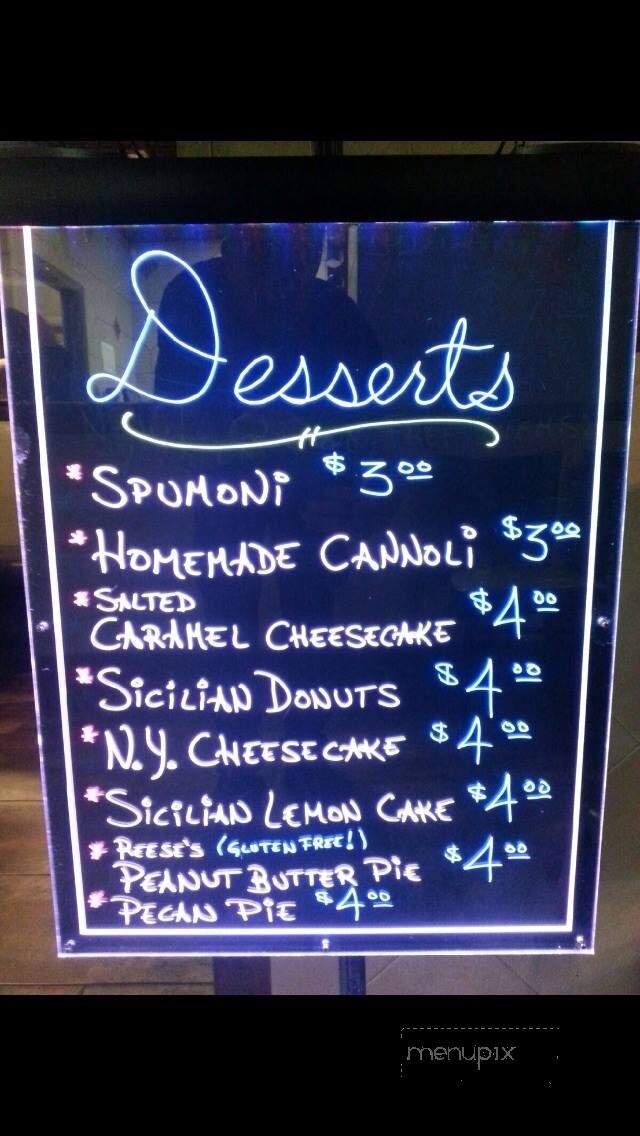 Desserts
* SPUMONi $3.00
* HOMEMADE CANNOLi $3.00
* SALTED
CARAMEL CHEESECAKE $4.00
* SiCiLiAN DONUTS $4.00
* N.Y. CHEESECAKE $4.00
* SiCiLiAN LEMON CAKE $4.00
* REESE'S (GLUTEN FREE!)
PEANUT BUTTER PiE $4.00
* PECAN PiE $4.00
menupix